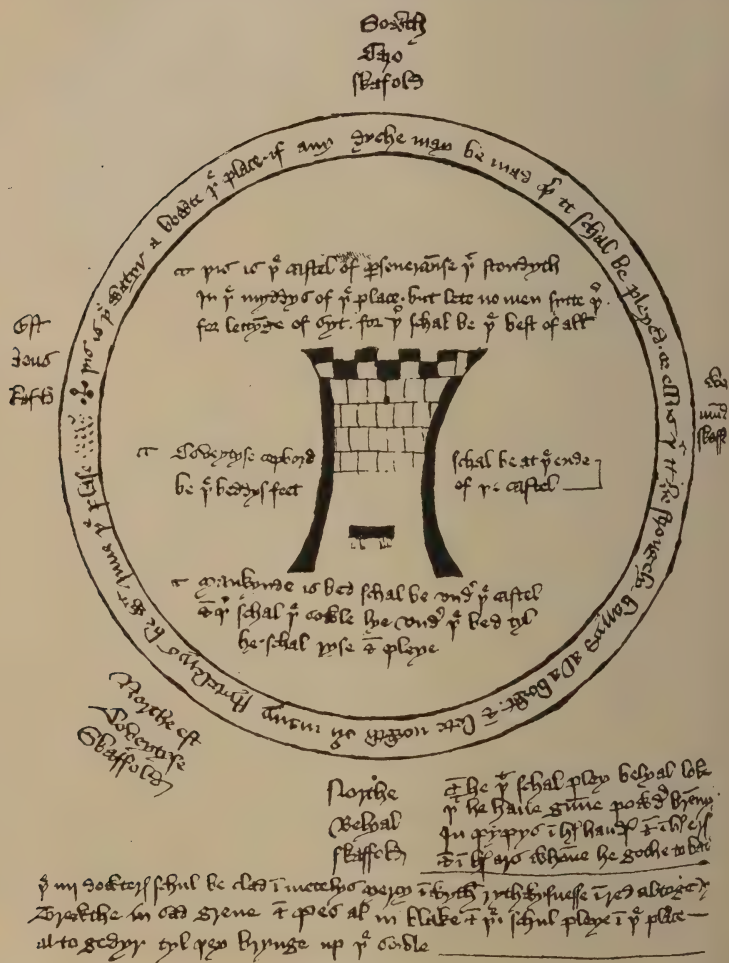 Sowth
Caro
skafold
þis is þe watyr a bowte þe place · if any dyche may be mad þer it schal be pleyed · or ellys þt it be strongely barryd al a bowt · & lete nowth ovyr many stytelerys be wt Inne þe plase
þis is þe castel of perseueraunse þt stondyth
In þe myddys of þe place · but lete no men sytte þer
for lettynge of syt · for þer schal be þe best of all
Est
deus
skafold
We
mūd
skaff
Coveytyse copbord
be þe beddys feet
schal be at þe ende
of þe castel
Mankynde is bed schal be vndyr þe castel
& þer schal þe sowle lye vndyr þe bed tyl
he schal ryse & pleye
Northe est
Coveytyse
Skaffold
Northe
Belyal
skaffold
& he þt schal pley belyal loke
þt he haue gunne powdyr brenny
In pypys ī hys handys & ī hys erys
& ī hys ars whanne he gothe to bat
þe iiij dowterys schul be clad ī mentelys mercy ī wyth rythwysnesse ī red al togedyr
Trewthe in sad grene & pes al in blake & þei schul pleye ī þe place
al to gedyr tyl þey brynge up þe sowle